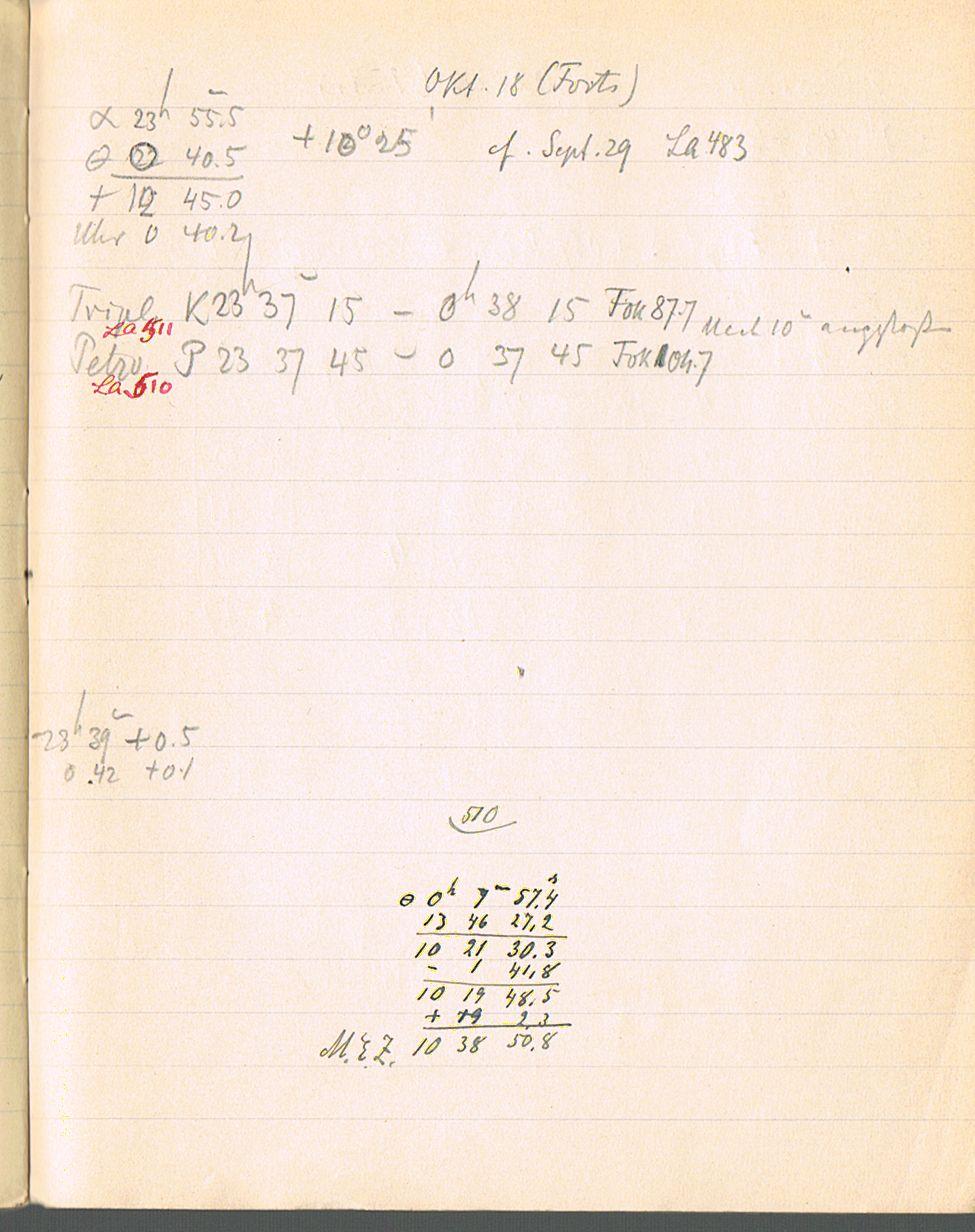 Okt. 18 (Forts)
α 23h 55.5m
θ 22 40.5
+10° 25' cf. Sept. 29 La 483
+ 1 45.0
Uhr 0 40.2
Tripl. K 23h 37m 15 – 0h 38 15 Fok 87.7 Nach 10m
La 511
Petzv. P 23 37 45 – 0 37 45 Fok 104.7
La 510
23h 39m +0.5
0.42 +0.1
510
θ 0h 7m 57.4s
13 46 27.2
10 21 30.3
- 1 41.8
10 19 48.5
+ 19 2.3
M.E.Z. 10 38 50.8